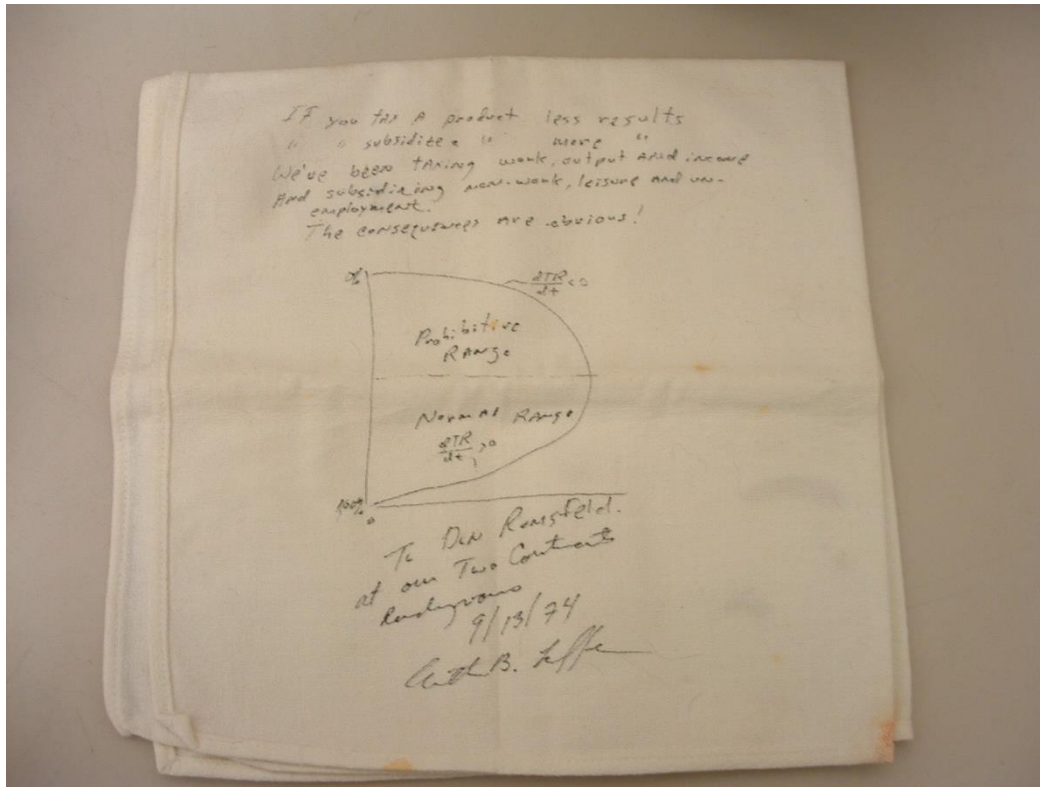 If you tax a product less results
" " subsidize a " more "
We've been taxing work, output and income
and subsidizing non-work, leisure and un-
employment.
The consequences are obvious!
0%
dTR/dt < 0
Prohibitive
Range
Normal Range
dTR/dt > 0
100%
0
To Don Rumsfeld.
at our Two Continents
Rendezvous
9/13/74
Arthur B. Laffer